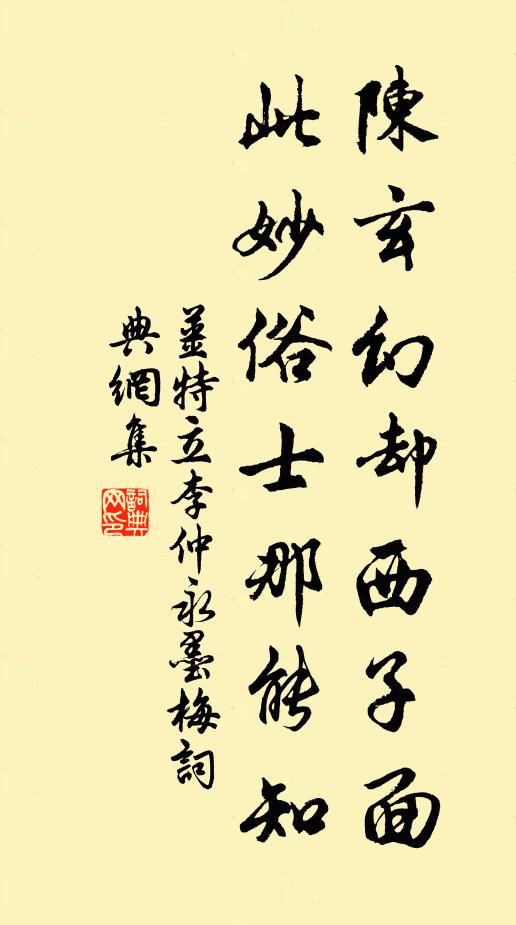 陳玄幻却西子面
此妙俗士那能知
姜特立李仲永墨梅詞
典網集
詞典
网印